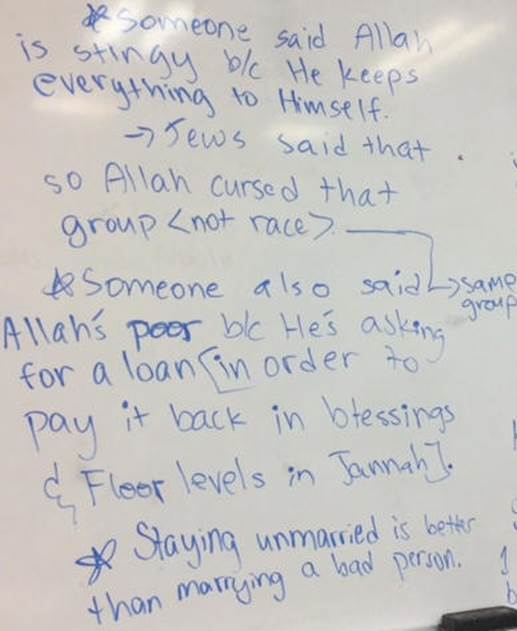 *Someone said Allah
is stingy b/c He keeps
everything to Himself.
→ Jews said that
so Allah cursed that
group <not race>.
*Someone also said → same
group
Allah's poor b/c He's asking
for a loan [in order to
pay it back in blessings
& Floor levels in Jannah].
* Staying unmarried is better
than marrying a bad person.